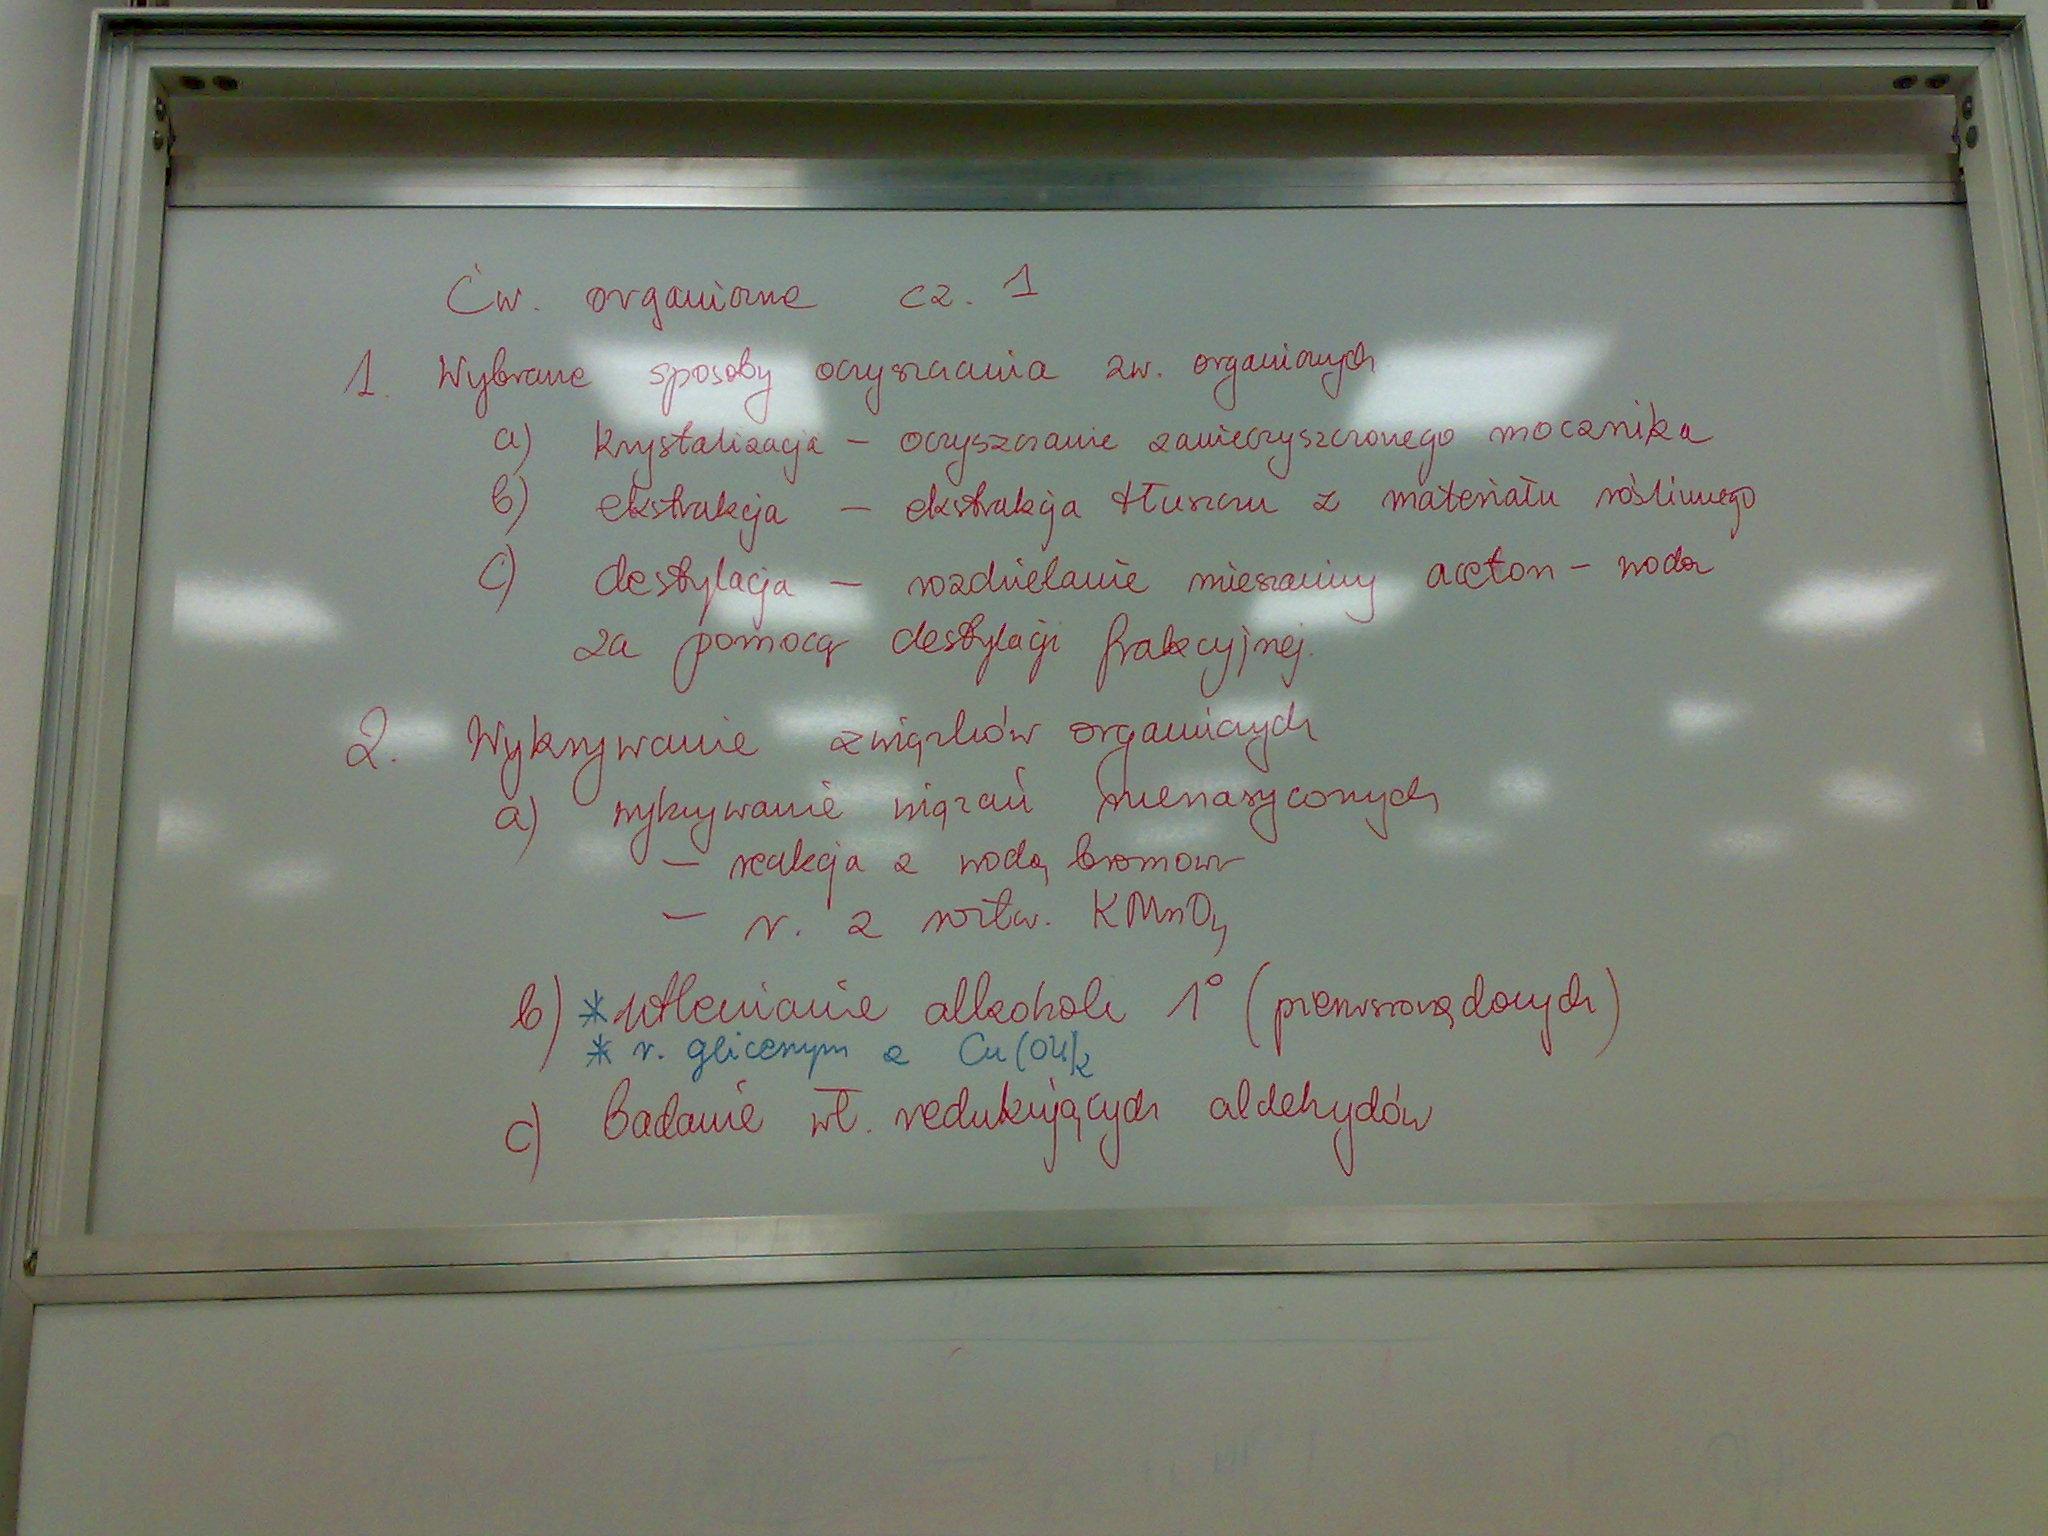 Ćw. organiczne cz. 1
1. Wybrane sposoby oczyszczania zw. organicznych
a) krystalizacja – oczyszczanie zanieczyszczonego mocznika
b) ekstrakcja – ekstrakcja tłuszczu z materiału roślinnego
c) destylacja – rozdzielanie mieszaniny aceton – woda
za pomocą destylacji frakcyjnej.
2. Wykrywanie związków organicznych
a) wykrywanie wiązań nienasyconych
– reakcja z wodą bromową
– r. z roztw. KMnO4
b) * utlenianie alkoholi 1° (pierwszorzędowych)
* r. gliceryny z Cu(OH)2
c) Badanie wł. redukujących aldehydów